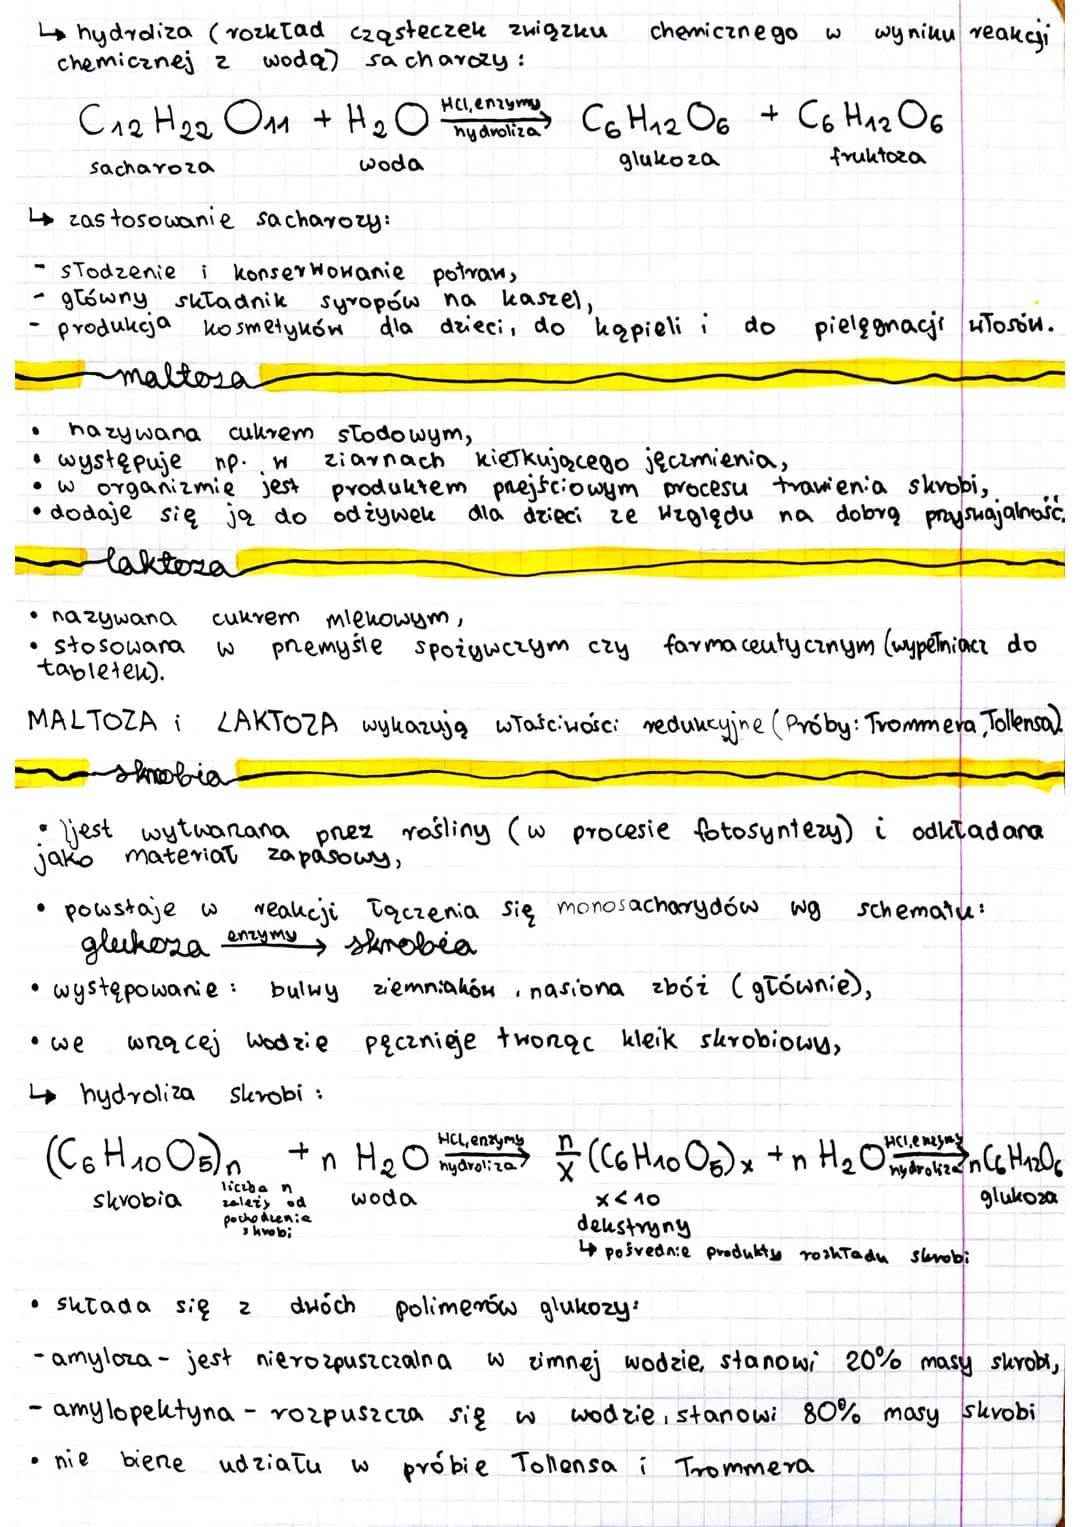 ↳ hydroliza (rozkład cząsteczek związku chemicznego w wyniku reakcji
chemicznej z wodą) sacharozy:
C12H22O11 + H2O HCl, enzymy hydroliza → C6H12O6 + C6H12O6
sacharoza woda glukoza fruktoza
↳ zastosowanie sacharozy:
- słodzenie i konserwowanie potraw,
- główny składnik syropów na kaszel,
- produkcja kosmetyków dla dzieci, do kąpieli i do pielęgnacji włosów.
maltoza
• nazywana cukrem słodowym,
• występuje np. w ziarnach kiełkującego jęczmienia,
• w organizmie jest produktem przejściowym procesu trawienia skrobi,
• dodaje się ją do odżywek dla dzieci ze względu na dobrą przyswajalność.
laktoza
• nazywana cukrem mlekowym,
• stosowana w przemyśle spożywczym czy farmaceutycznym (wypełniacz do
tabletek).
MALTOZA i LAKTOZA wykazują właściwości redukcyjne (Próby: Trommera, Tollensa).
skrobia
• jest wytwarzana przez rośliny (w procesie fotosyntezy) i odkładana
jako materiał zapasowy,
• powstaje w reakcji łączenia się monosacharydów wg schematu:
glukoza enzymy → skrobia
• występowanie: bulwy ziemniaków, nasiona zbóż (głównie),
• we wrzącej wodzie pęcznieje tworząc kleik skrobiowy,
↳ hydroliza skrobi:
(C6H10O5)n + n H2O HCl, enzymy hydroliza → n/x (C6H10O5)x + n H2O HCl, enzymy hydroliza → n C6H12O6
skrobia liczba n zależy od pochodzenia skrobi woda x<10 glukoza
dekstryny
↳ pośrednie produkty rozkładu skrobi
• składa się z dwóch polimerów glukozy:
- amyloza - jest nierozpuszczalna w zimnej wodzie, stanowi 20% masy skrobi,
- amylopektyna - rozpuszcza się w wodzie, stanowi 80% masy skrobi
• nie bierze udziału w próbie Tollensa i Trommera